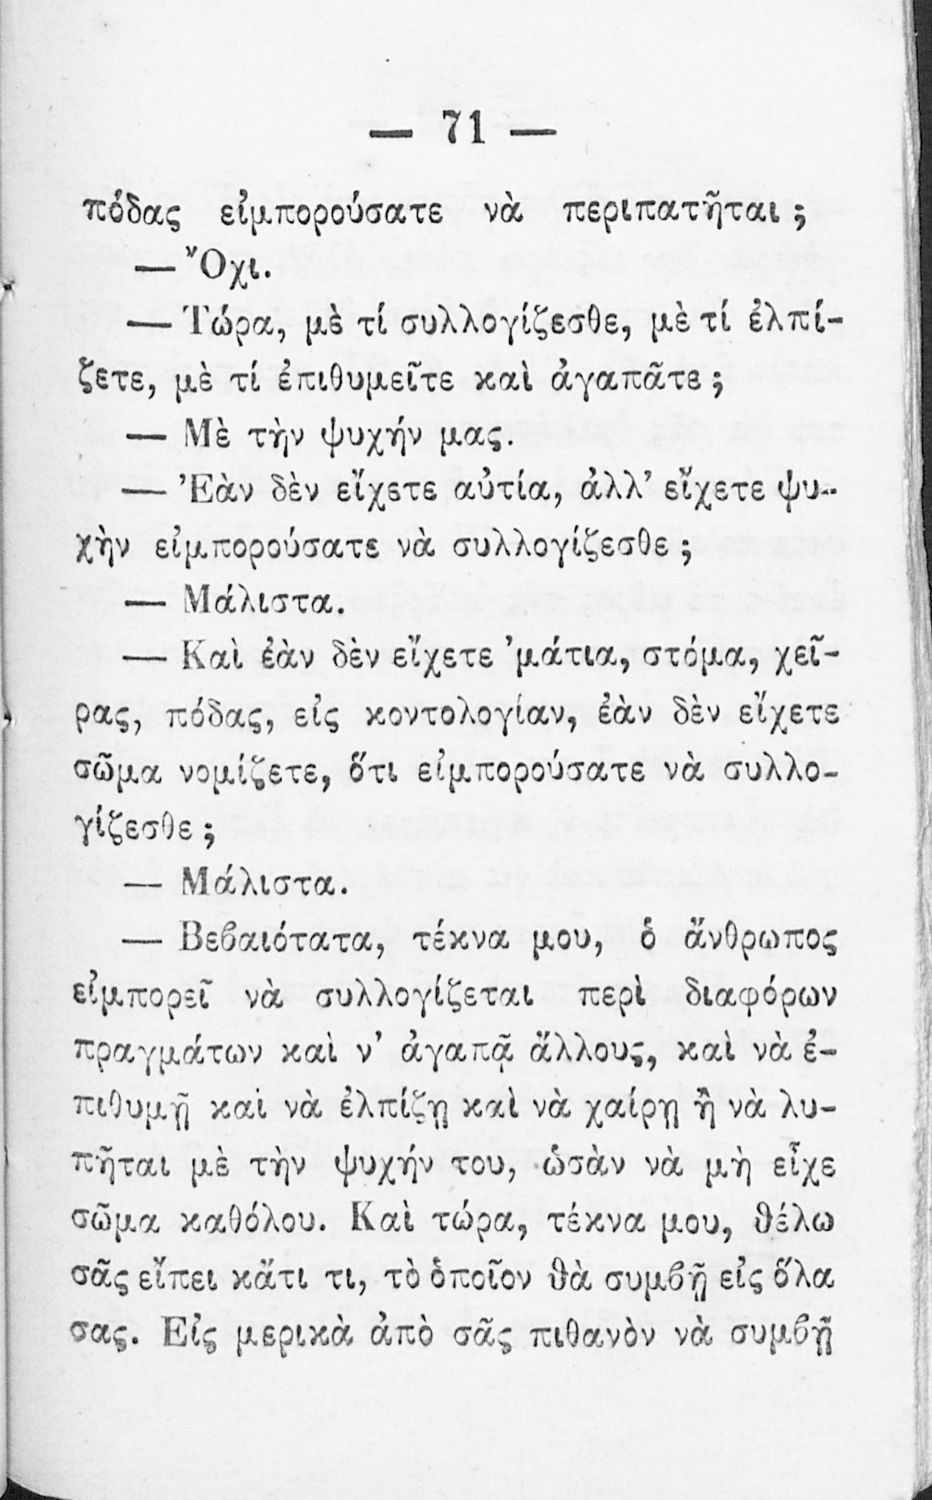 — 71 —
πόδας εἰμπορούσατε νὰ περιπατῆται ;
— Ὄχι.
— Τώρα, μὲ τί συλλογίζεσθε, μὲ τί ἐλπί-
ζετε, μὲ τί ἐπιθυμεῖτε καὶ ἀγαπᾶτε ;
— Μὲ τὴν ψυχήν μας.
— Ἐὰν δὲν εἴχετε αὐτία, ἀλλ’ εἴχετε ψυ-
χὴν εἰμπορούσατε νὰ συλλογίζεσθε ;
— Μάλιστα.
— Καὶ ἐὰν δὲν εἴχετε ’μάτια, στόμα, χεῖ-
ρας, πόδας, εἰς κοντολογίαν, ἐὰν δὲν εἴχετε
σῶμα νομίζετε, ὅτι εἰμπορούσατε νὰ συλλο-
γίζεσθε ;
— Μάλιστα.
— Βεβαιότατα, τέκνα μου, ὁ ἄνθρωπος
εἰμπορεῖ νὰ συλλογίζεται περὶ διαφόρων
πραγμάτων καὶ ν’ ἀγαπᾷ ἄλλους, καὶ νὰ ἐ-
πιθυμῇ καὶ νὰ ἐλπίζῃ καὶ νὰ χαίρῃ ἢ νὰ λυ-
πῆται μὲ τὴν ψυχήν του, ὡσὰν νὰ μὴ εἶχε
σῶμα καθόλου. Καὶ τώρα, τέκνα μου, θέλω
σᾶς εἴπει κἄτι τι, τὸ ὁποῖον θὰ συμβῇ εἰς ὅλα
σας. Εἰς μερικὰ ἀπὸ σᾶς πιθανὸν νὰ συμβῇ